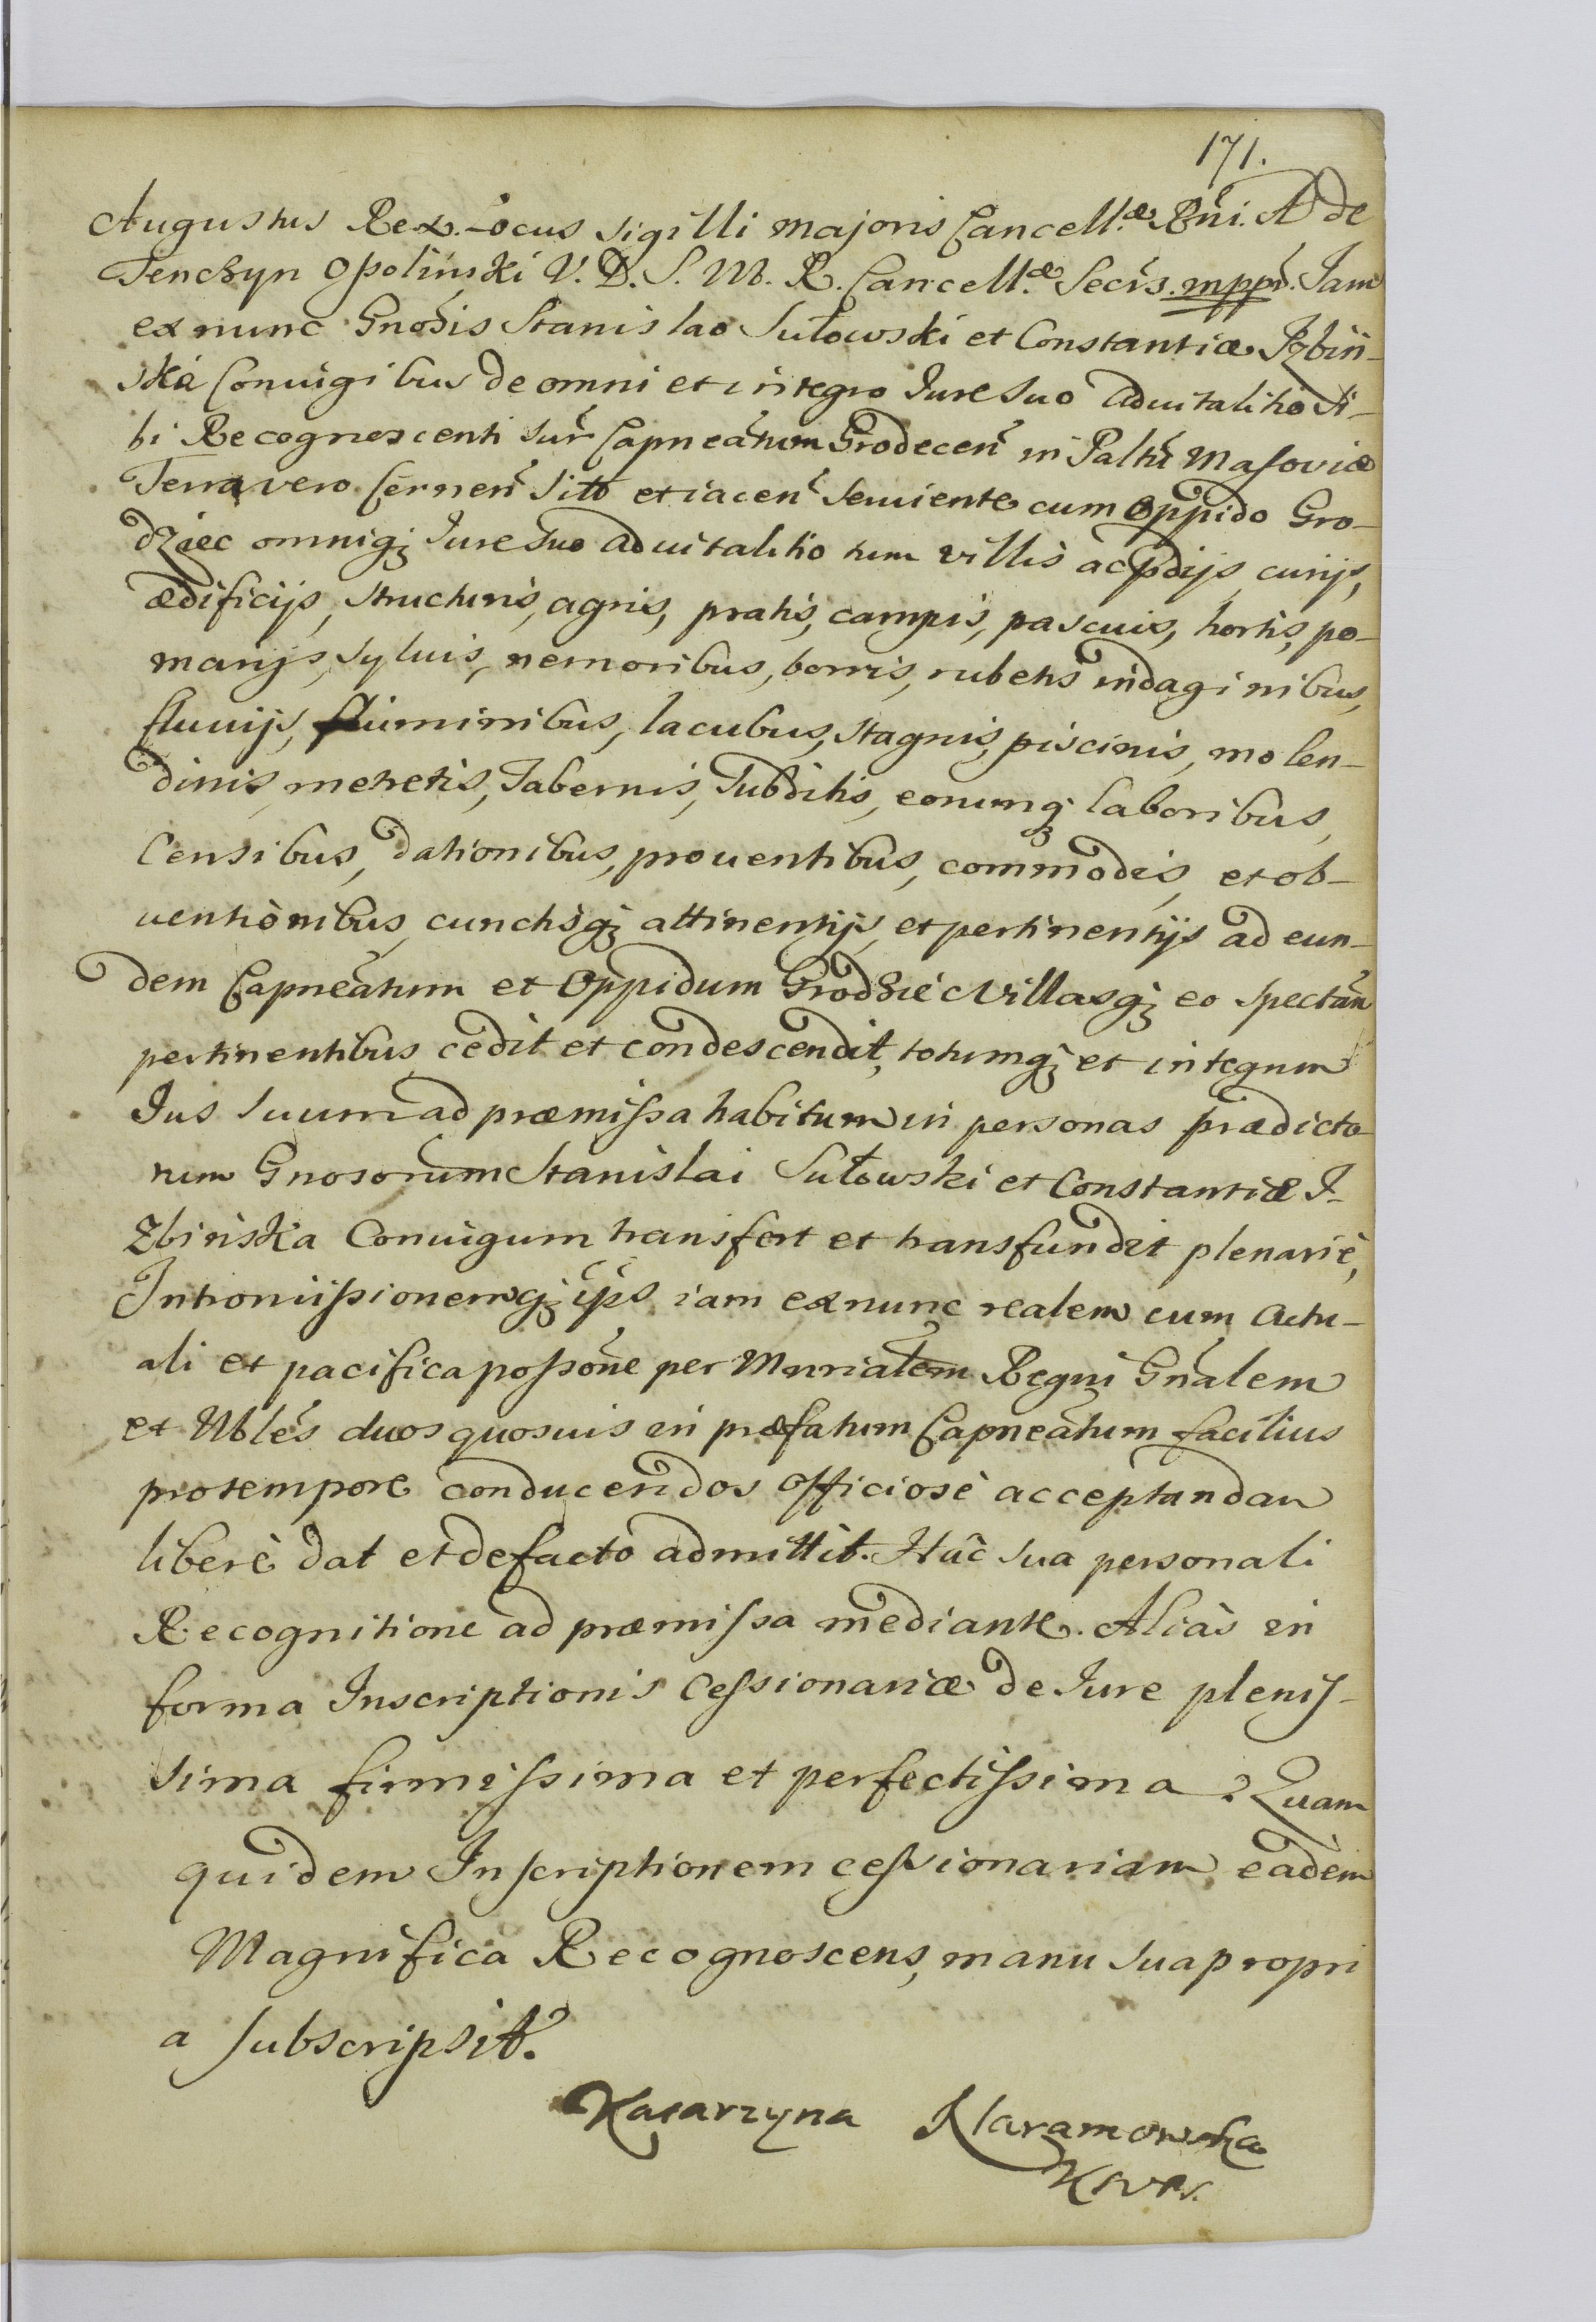 171.
Augustus Rex. Locus sigilli majoris Cancell.æ Rñi. A de
Tenczyn Opoliński V. D. S. M. R. Cancell.æ Secr̃s. mppr̃. Jam
ex nunc Gnosis Stanislao Sułowski et Constantiæ Izbiń-
ska Coniugibus de omni et integro Jure suo aduitalitio si-
bi Recognoscenti sup̃ Capneãtum Grodecen̄ in Paltũ Masoviæ
Terra vero Cernen̄ sito et iacen̄ seruiente cum Oppido Gro-
dziec omniq; Jure suo aduitalitio tum villis ac p̃dijs, curijs,
ædificijs, structuris, agris, pratis, campis, pascuis, hortis, po-
marijs, syluis, nemoribus, borris, rubetis indaginibus,
fluuijs, fluminibus, lacubus, stagnis, piscinis, molen-
dinis, metretis, Tabernis, Subditis, eorumq; laboribus,
Censibus, dationibus, prouentibus, commodis, et ob-
uentionibus, cunctisq; attinentijs, et pertinentijs ad eun-
dem Capneãtum et Oppidum Grodziec Villasq; eo spectañ
pertinentibus cedit et condescendit, totumq; et integrum
Jus suum ad præmissa habitum in personas prædicto-
rum Gnosorum Stanislai Sułowski et Constantiæ I-
zbińska Coniugum transfert et transfundit plenariè,
Intromissionemq; ip̃s iam ex nunc realem cum actu-
ali et pacifica possõne per Mnrialem Regni Gñalem
et Nblẽs duos quosuis in præfatum Capneãtum facilius
pro tempore conducendos officiosè acceptandam
liberè dat et de facto admittit. Hâc sua personali
Recognitione ad præmissa mediante. Aliàs in
forma Inscriptionis Cessionariæ de Jure plenis-
sima firmissima et perfectissima Quam
quidem Inscriptionem cessionariam eadem
Magnifica Recognoscens, manu sua propri
a subscripsit.
Katarzyna Naramowska